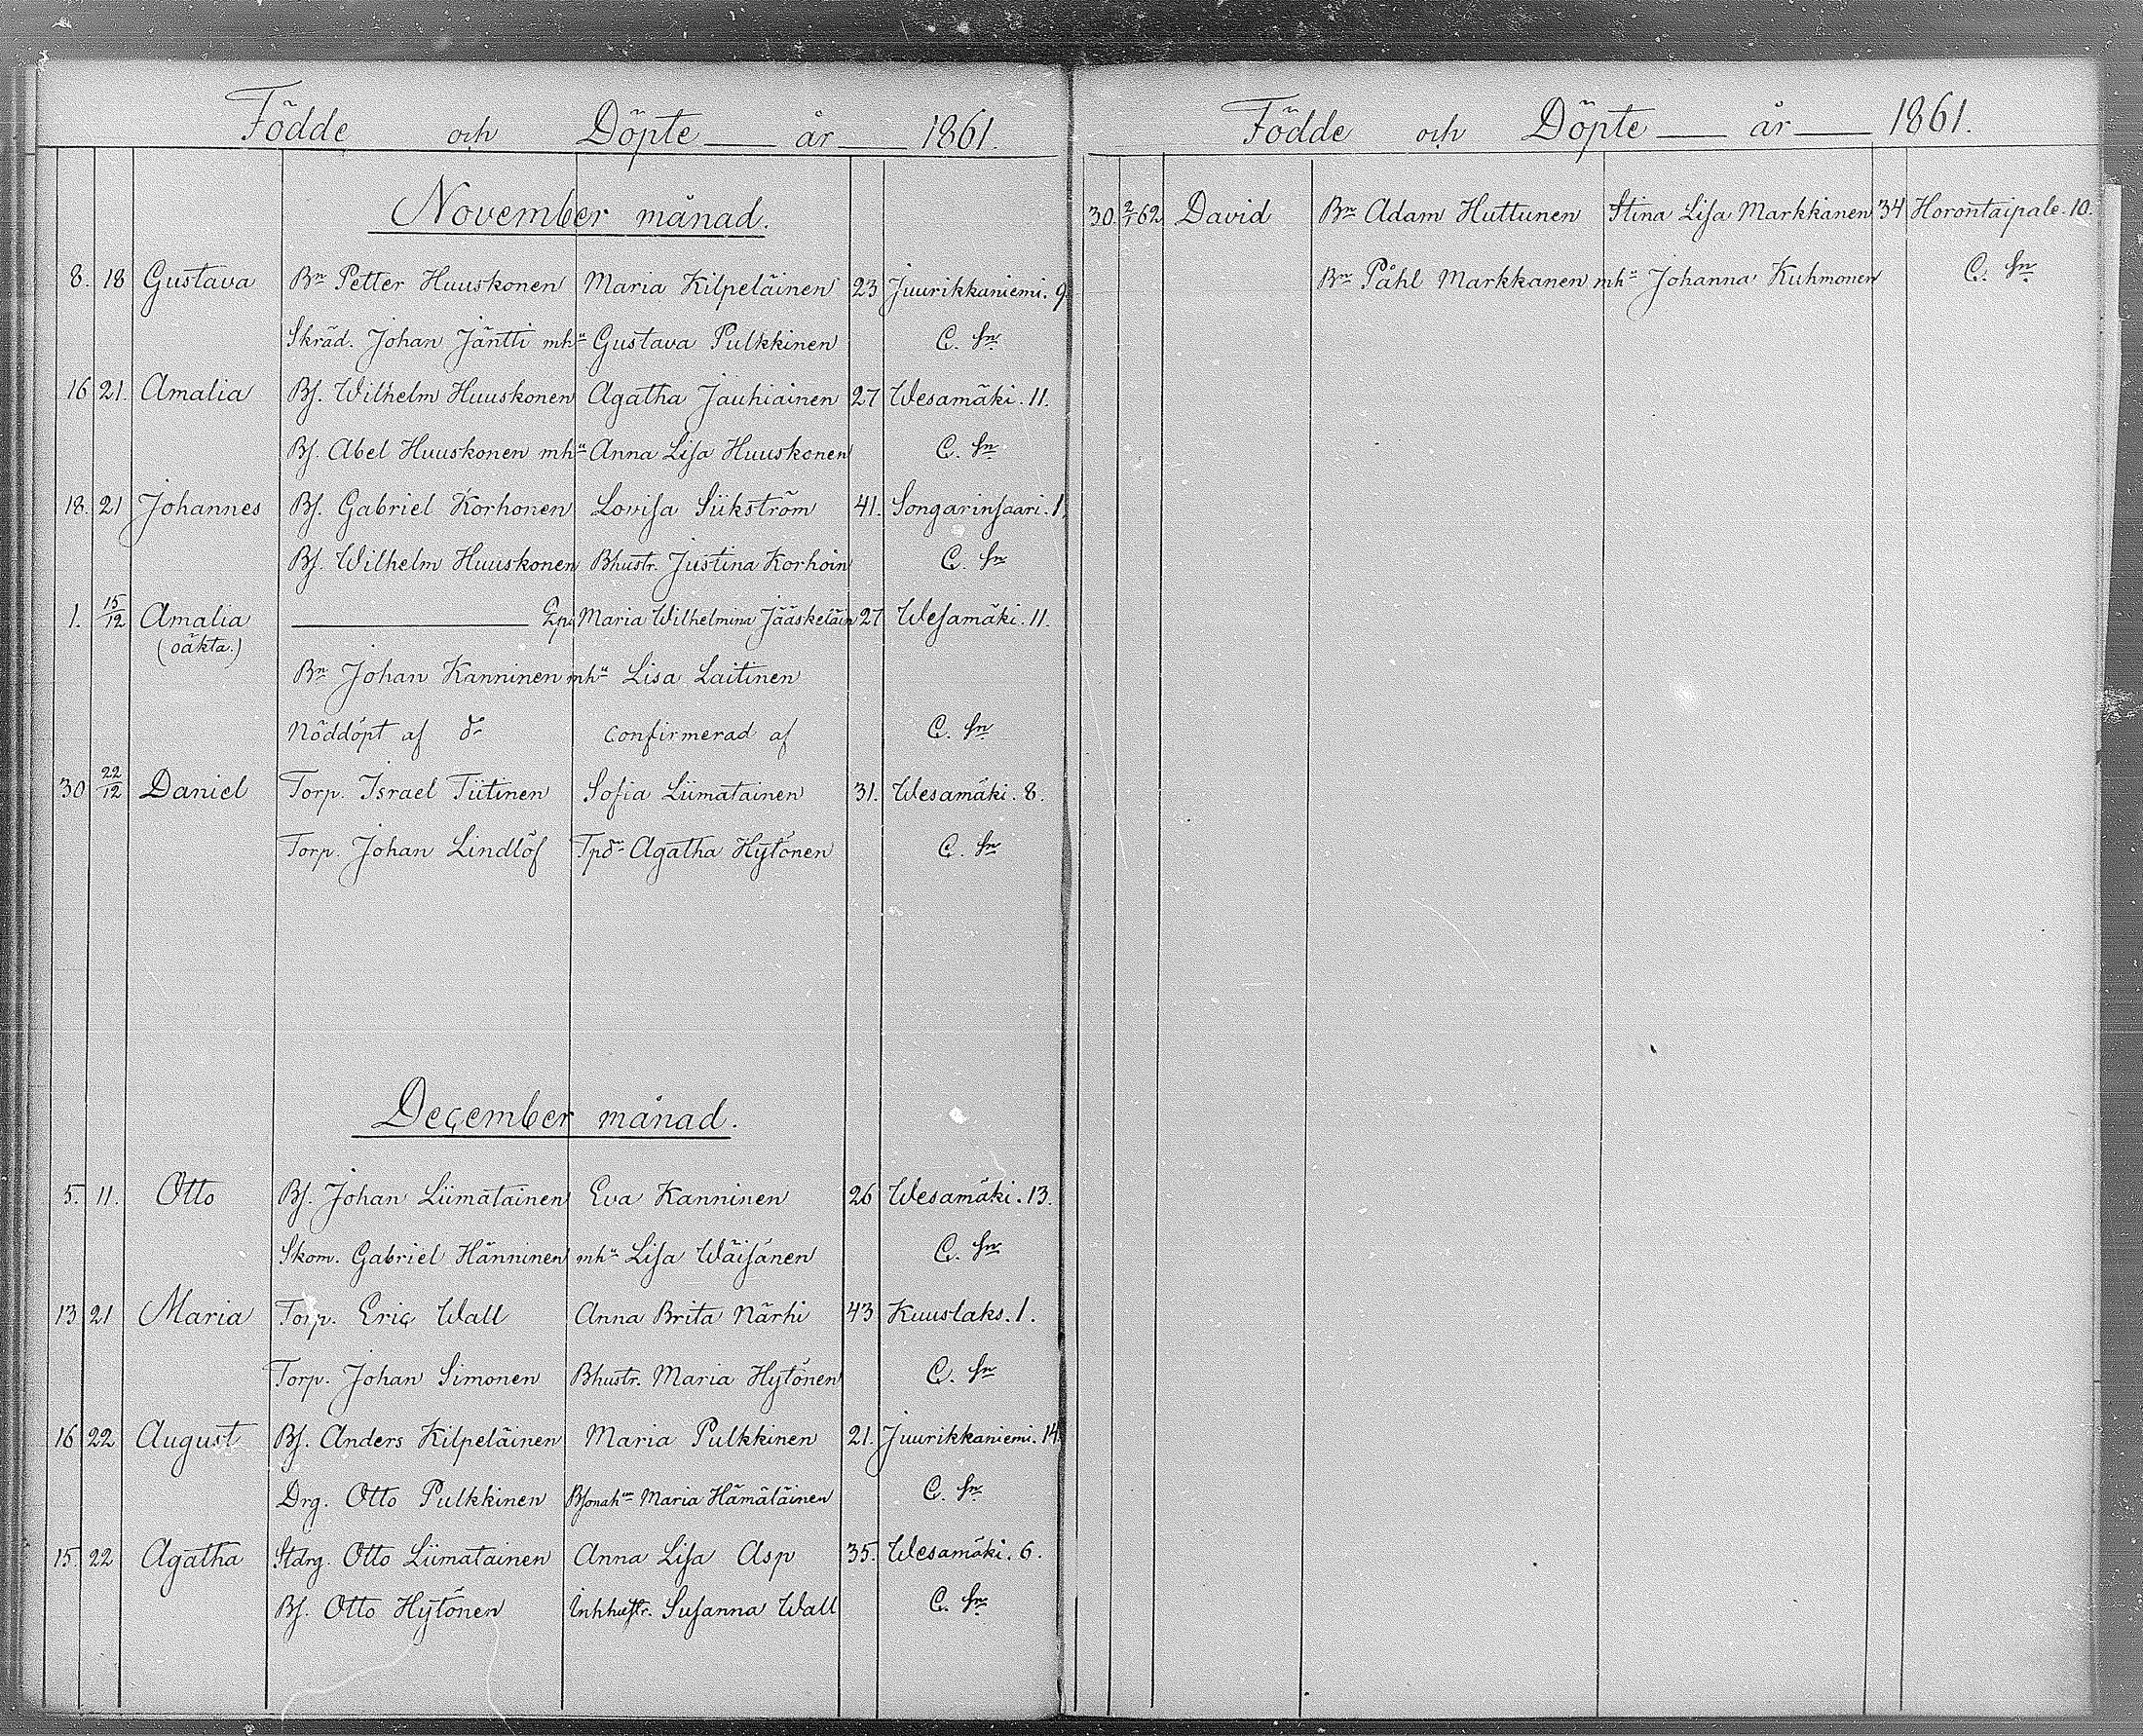 Födde och Döpte — år — 1861.
November månad.
8. 18 Gustava Bn Petter Huuskonen Maria Kilpeläinen 23 Juurikkaniemi. 9.
Skräd. Johan Jäntti mha Gustava Pulkkinen C. Sn
16 21. Amalia Bs. Wilhelm Huuskonen Agatha Jauhiainen 27 Wesamäki. 11.
Bs. Abel Huuskonen mha Anna Lisa Huuskonen C. Sn
18. 21 Johannes Bs. Gabriel Korhonen Lovisa Siikström 41. Songarinsaari. 1.
Bs. Wilhelm Huuskonen Bhustr. Justina Korhoin C. Sn
1. 15/12 Amalia — Maria Wilhelmina Jääskeläin 27 Wesamäki. 11.
(oäkta.)
Bn Johan Kanninen mha Lisa Laitinen
Nöddöpt af dr confirmerad af C. Sn
30 22/12 Daniel Torp. Israel Tiitinen Sofia Liimatainen 31. Wesamäki. 8.
Torp. Johan Lindlöf Tpdr Agatha Hytönen C. Sn
December månad.
5. 11. Otto Bs. Johan Liimatainen Eva Kanninen 26 Wesamäki. 13.
Skom. Gabriel Hänninen mha Lisa Wäisänen C. Sn
13 21 Maria Torp. Eric Wall Anna Brita Närhi 43 Kuuslaks. 1.
Torp. Johan Simonen Bhustr. Maria Hytönen C. Sn
16 22 August Bs. Anders Kilpeläinen Maria Pulkkinen 21. Juurikkaniemi. 14.
Drg. Otto Pulkkinen Maria Hämäläinen C. Sn
15. 22 Agatha Stdrg. Otto Liimatainen Anna Lisa Asp 35. Wesamäki. 6.
Bs. Otto Hytönen Inhhustr. Susanna Wall C. Sn
Födde och Döpte — år — 1861.
30. 2/1 62 David Bn Adam Huttunen Stina Lisa Markkanen 34 Horontaipale. 10.
Bn Påhl Markkanen mha Johanna Kuhmonen C. Sn